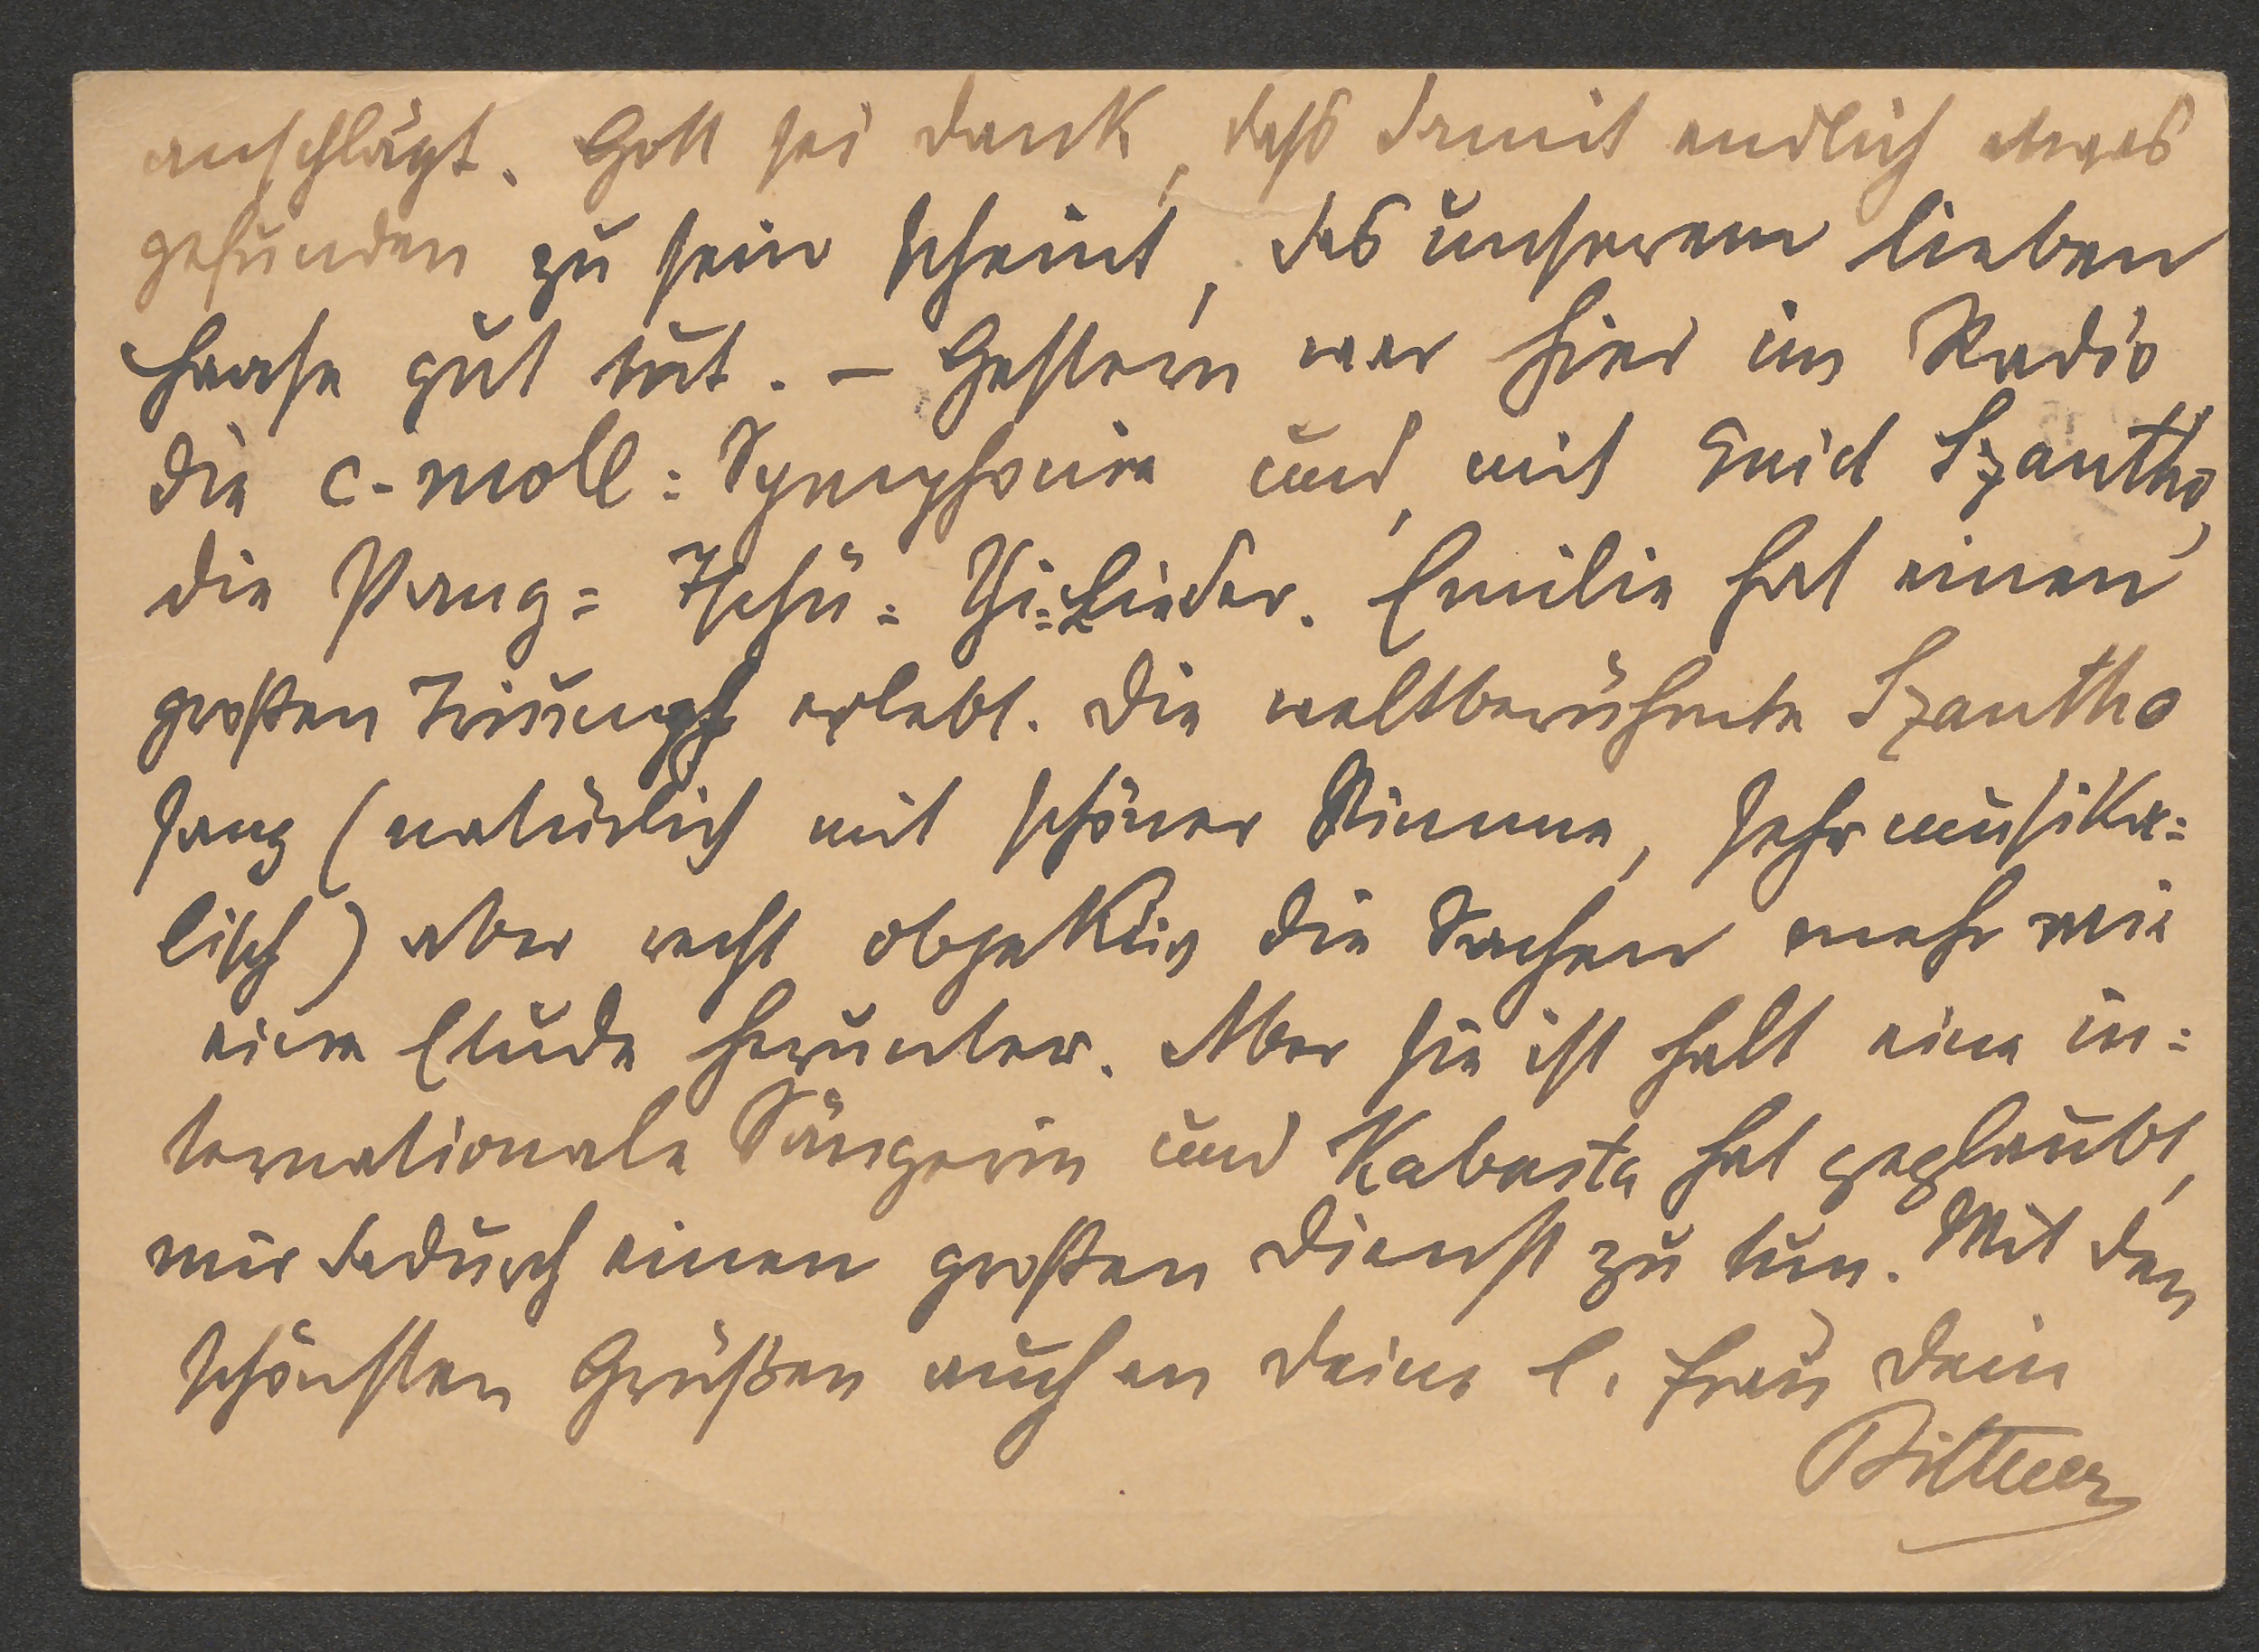 anschlägt. Gott sei Dank, daß damit endlich etwas
gefunden zu sein scheint, das unserem lieben
Haase gut tut. – Gestern war hier im Radio
die c-moll = Symphonie und, mit Enid Szantho,
die Pang = Tschu = Yi = Lieder. Emilie hat einen
großen Triumpf erlebt. Die weltberühmte Szantho
sang (natürlich mit schöner Stimme, sehr musika=
lisch) aber recht objektiv die Sachen mehr wie
eine Etude herunter. Aber sie ist halt eine in=
ternationale Sängerin und Kabasta hat geglaubt,
mir dadurch einen großen Dienst zu tun. Mit den
schönsten Grüßen auch an Deine l. Frau Dein
Bittner